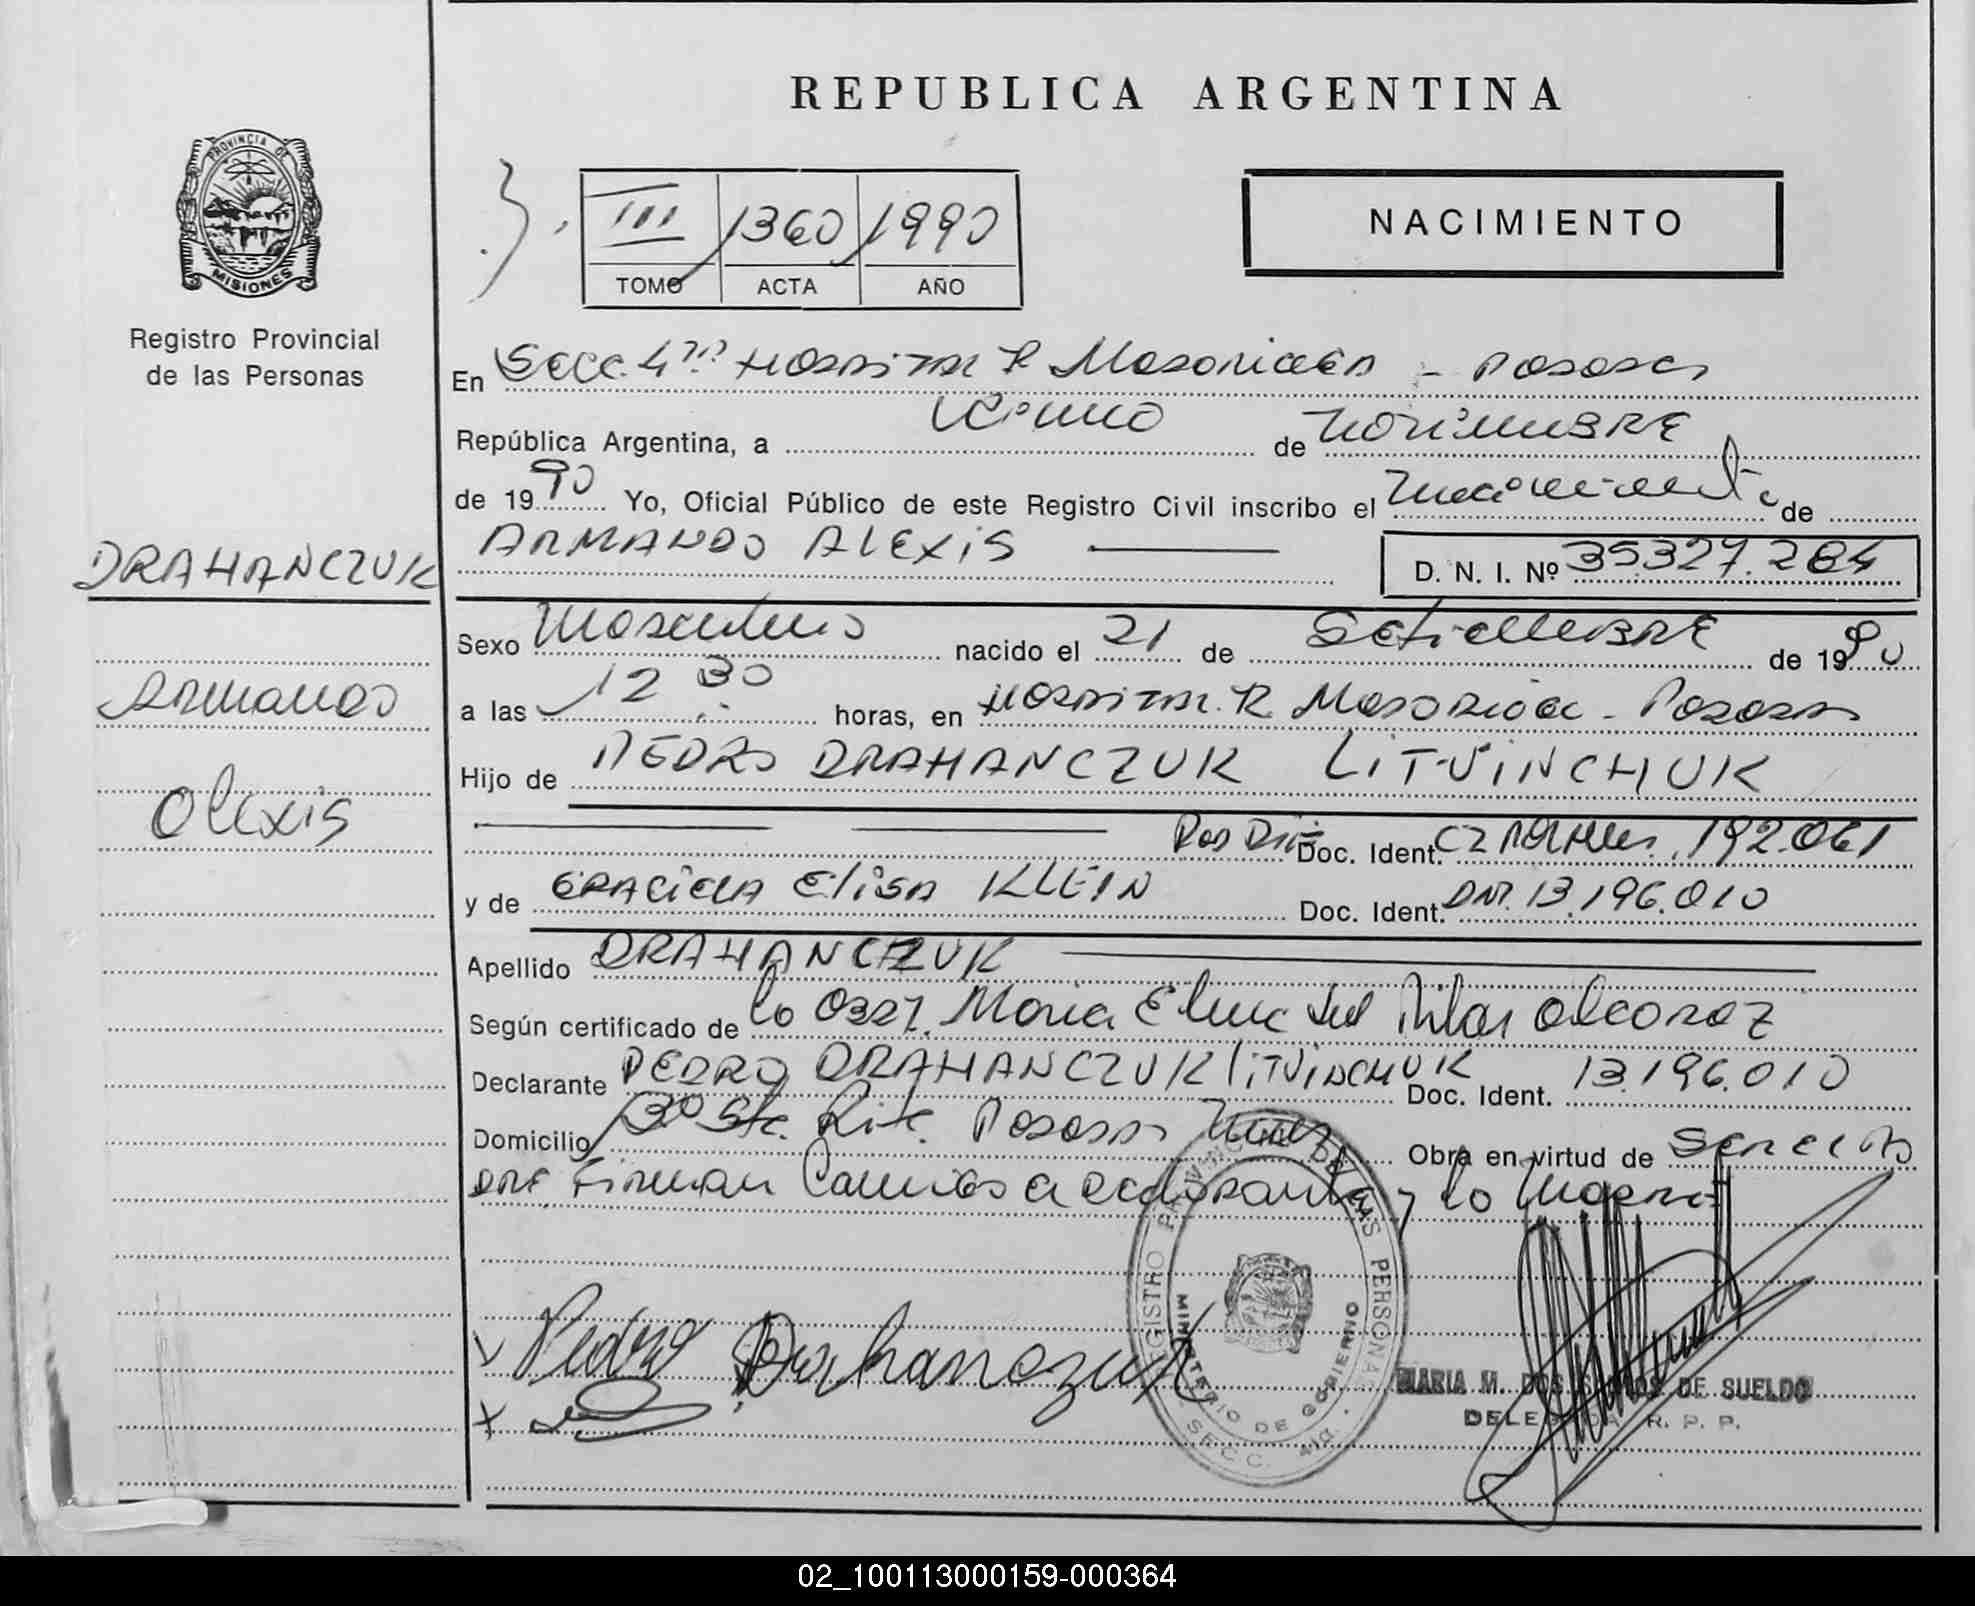 REPUBLICA ARGENTINA
PROVINCIA DE
MISIONES
Registro Provincial
de las Personas
III 1360 1990
TOMO ACTA AÑO
NACIMIENTO
En Secc. 4ta Hospital R Madariaga - Posadas
República Argentina, a de noviembre
de 1990 Yo, Oficial Público de este Registro Civil inscribo el nacimiento de
DRAHANCZUK
ARMANDO ALEXIS
D. N. I. Nº 35.327.284
Sexo Masculino nacido el 21 de Setiembre de 1990
Armando
a las 12 30 horas, en Hospital R. Madariaga - Posadas
Hijo de PEDRO DRAHANCZUK LITVINCHUK
Alexis
Doc. Ident. 192.061
y de GRACIELA ELISA KLEIN Doc. Ident. DNI. 13.196.010
Apellido DRAHANCZUK
Según certificado de la Obst. Maria Elena del Pilar Alcaraz
Declarante PEDRO DRAHANCZUK LITVINCHUK Doc. Ident. 13.196.010
Domicilio Bº Sta. Rita. Posadas Mnes Obra en virtud de
que firman conmigo el declarante y la
REGISTRO PROVINCIAL DE LAS PERSONAS
MINISTERIO DE GOBIERNO
SECC. 4ta
Pedro Drahanczuk
MARIA M. DOS SANTOS DE SUELDO
DELEGADA R. P. P.
02_100113000159-000364